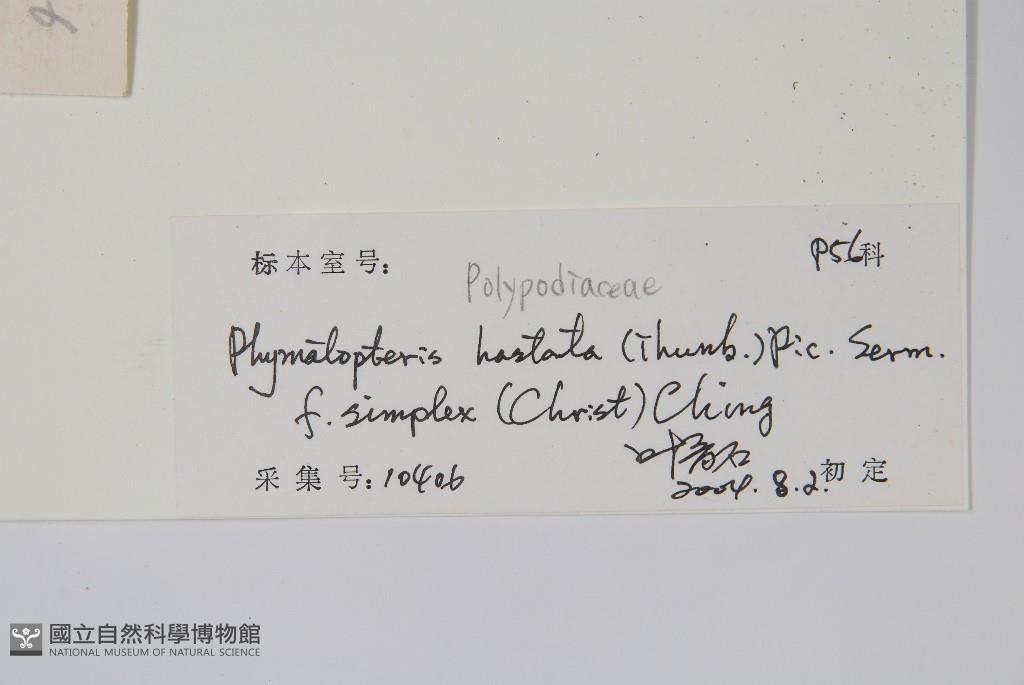 标本室号:
P56科
Polypodiaceae
Phymatopteris hastata (Thunb.) Pic. Serm.
f. simplex (Christ) Ching
采集号: 10406
2004. 8. 2. 初定
國立自然科學博物館
NATIONAL MUSEUM OF NATURAL SCIENCE